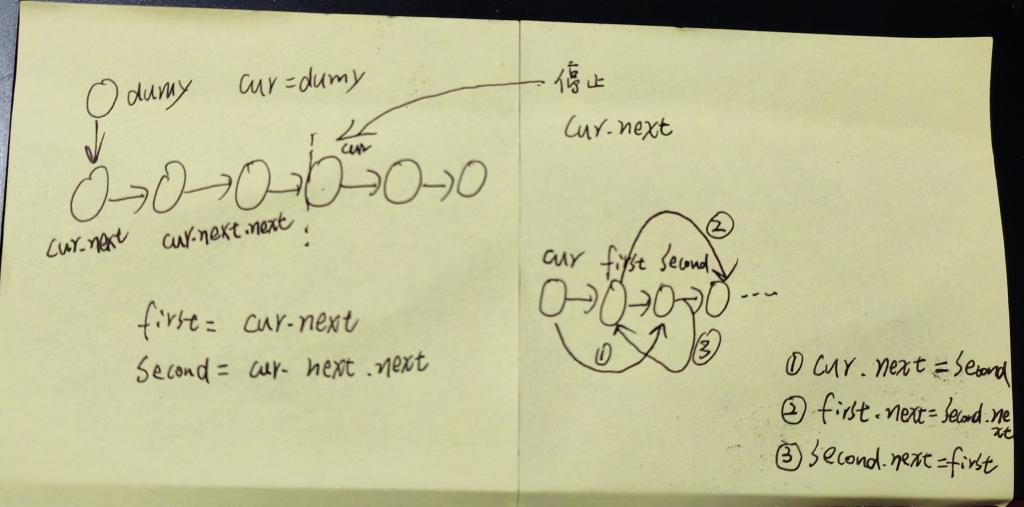 dumy cur = dumy
cur
cur.next cur.next.next
first = cur.next
second = cur. next .next
停止
cur.next
cur first second
②
①
③
① cur. next = second
② first.next = second.ne
xt
③ second.next = first